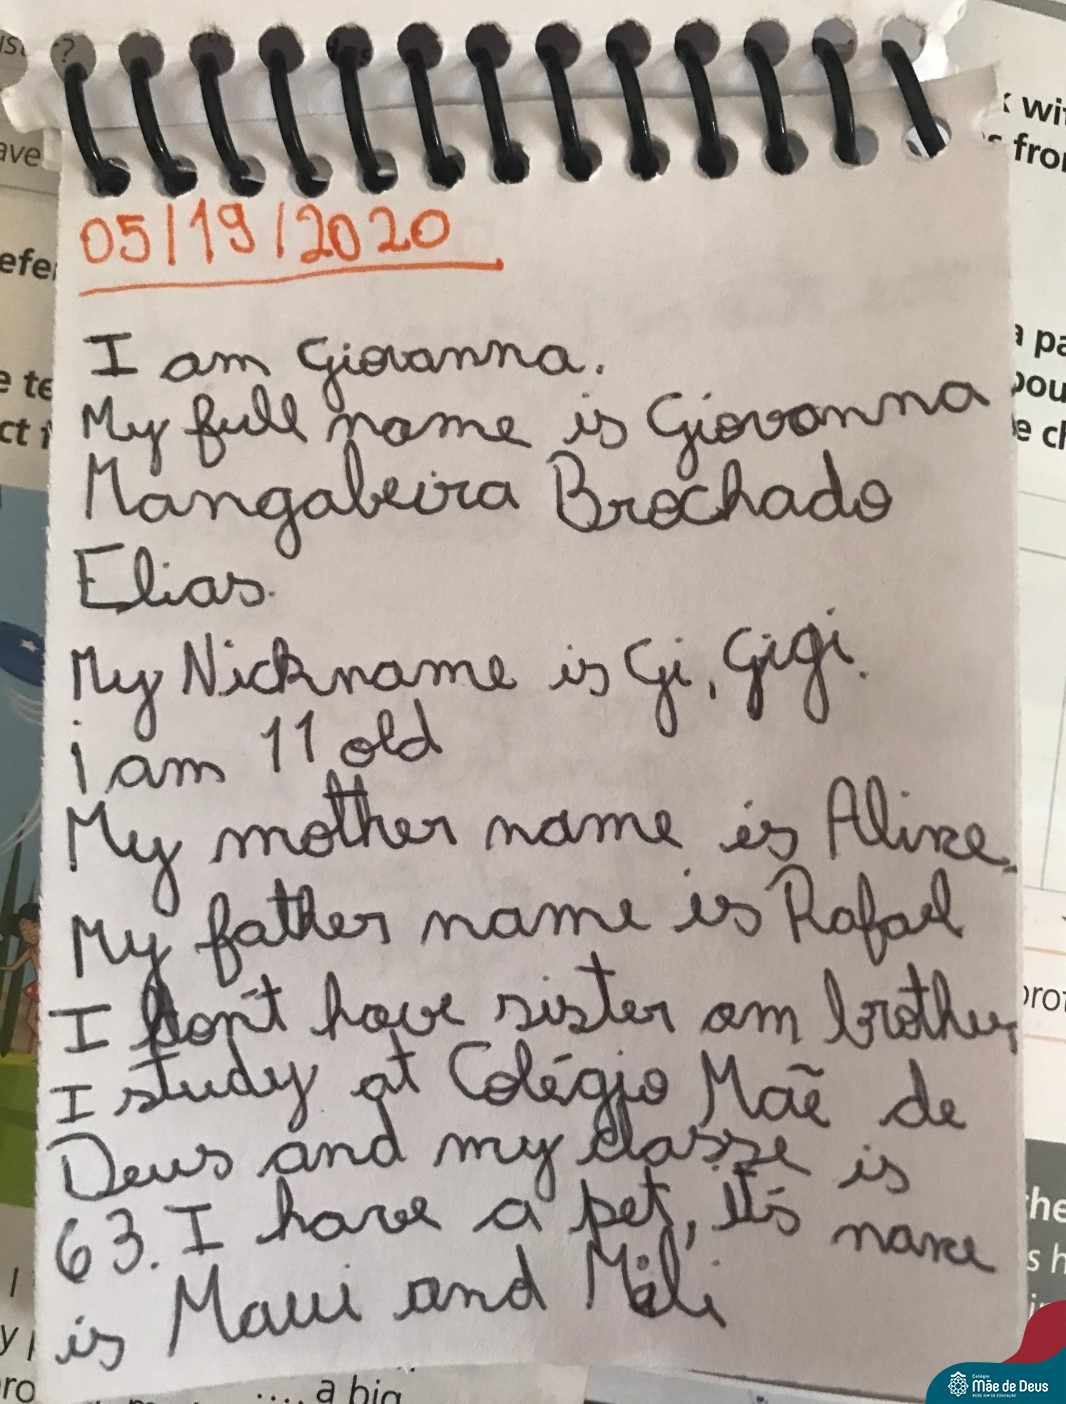 05/19/2020
I am Giovanna.
My full name is Giovanna
Mangabeira Brochado
Elias.
My Nickname is Gi, Gigi.
i am 11 old
My mother name is Aline.
My father name is Rafael
I don't have sister am brother,
I study at Colégio Maẽ de
Deus and my classe is
63. I have a pet, it's name
is Maui and Mili
ave
efe
e te
ct
k wi
from
a pa
pou
e ch
prot
he
s h
.... a big
Colégio
Mãe de Deus